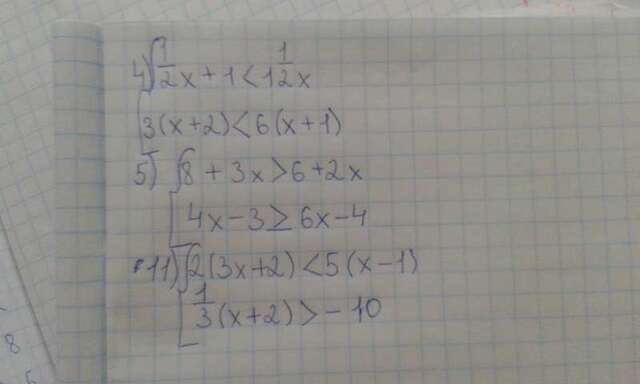 4) 1/2 x + 1 < 1 1/2 x
3(x+2) < 6(x+1)
5) 8 + 3x > 6 + 2x
4x - 3 ≥ 6x - 4
11) 2(3x+2) < 5(x-1)
1/3 (x+2) > -10
8